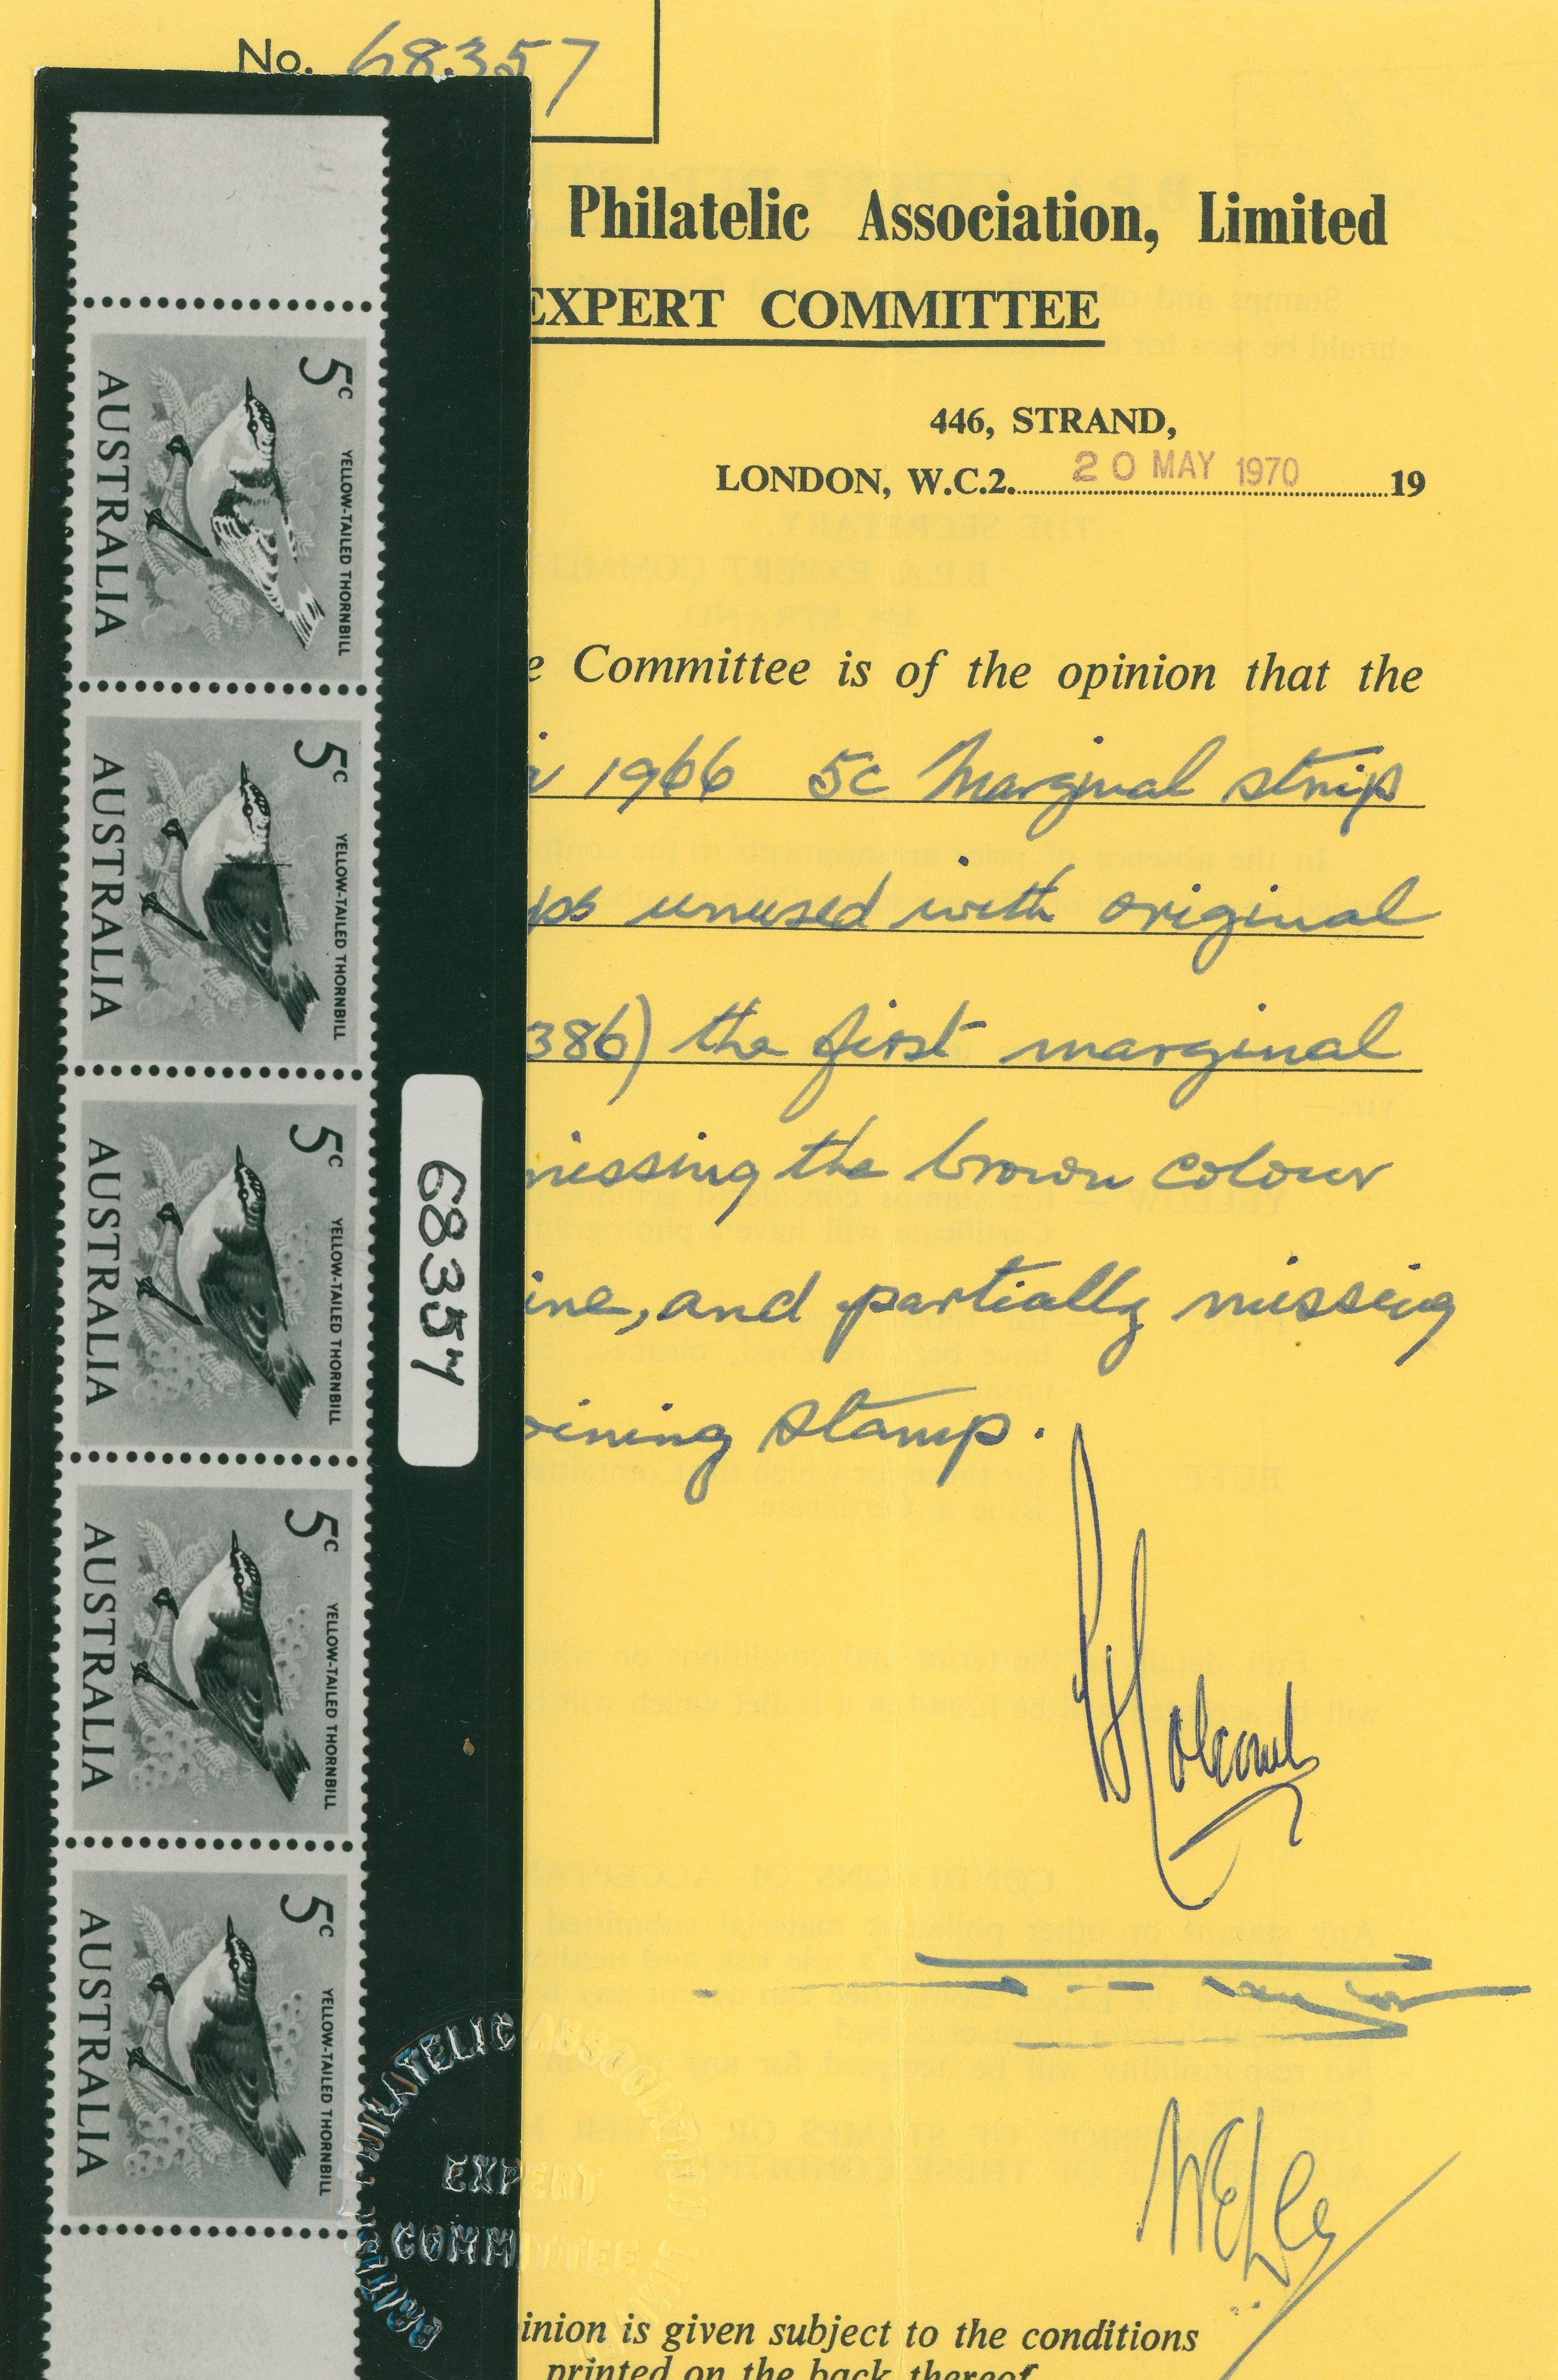 No. 68.357
Philatelic Association, Limited
EXPERT COMMITTEE
446, STRAND,
LONDON, W.C.2. 20 MAY 1970 19
e Committee is of the opinion that the
1966 5c Marginal strip
ps unused with original
386) the first marginal
missing the brown colour
ine, and partially missing
oining stamp.
inion is given subject to the conditions
printed on the back thereof
5c
YELLOW-TAILED THORNBILL
AUSTRALIA
5c
YELLOW-TAILED THORNBILL
AUSTRALIA
5c
YELLOW-TAILED THORNBILL
AUSTRALIA
5c
YELLOW-TAILED THORNBILL
AUSTRALIA
5c
YELLOW-TAILED THORNBILL
AUSTRALIA
68357
BRITISH PHILATELIC ASSOCIATION
EXPERT
COMMITTEE